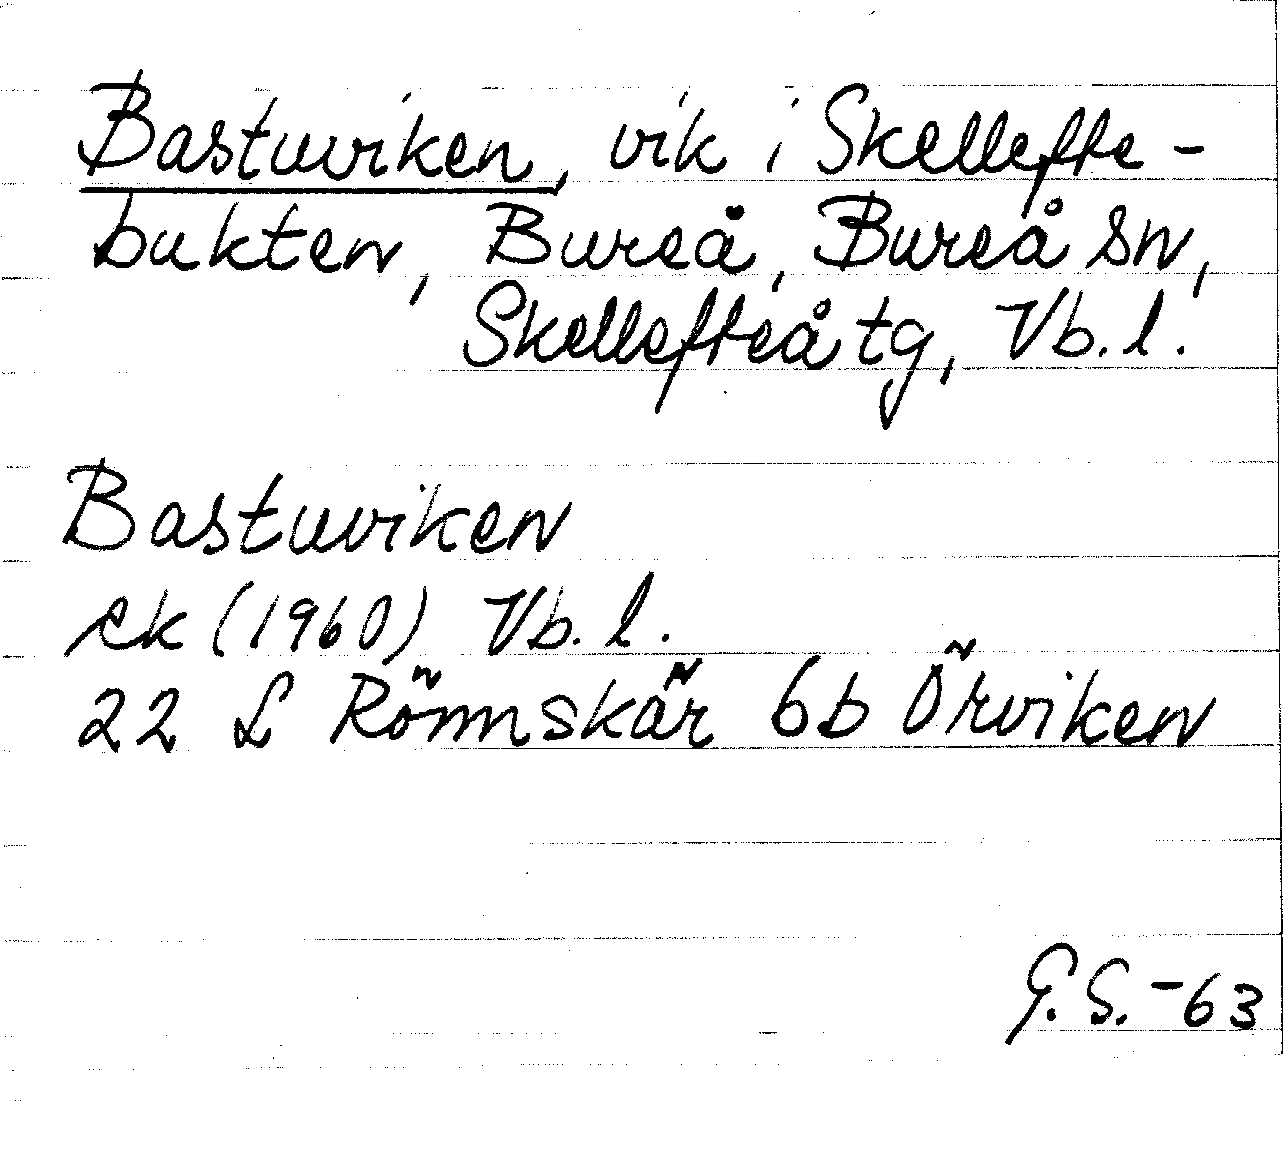 Bastuviken, vik i Skellefte-
bukten, Bureå, Bureå sn,
Skellefteå tg, Vb. l.
Bastuviken
ek (1960) Vb. l.
22 L Rönnskär 6b Örviken
G.S.-63